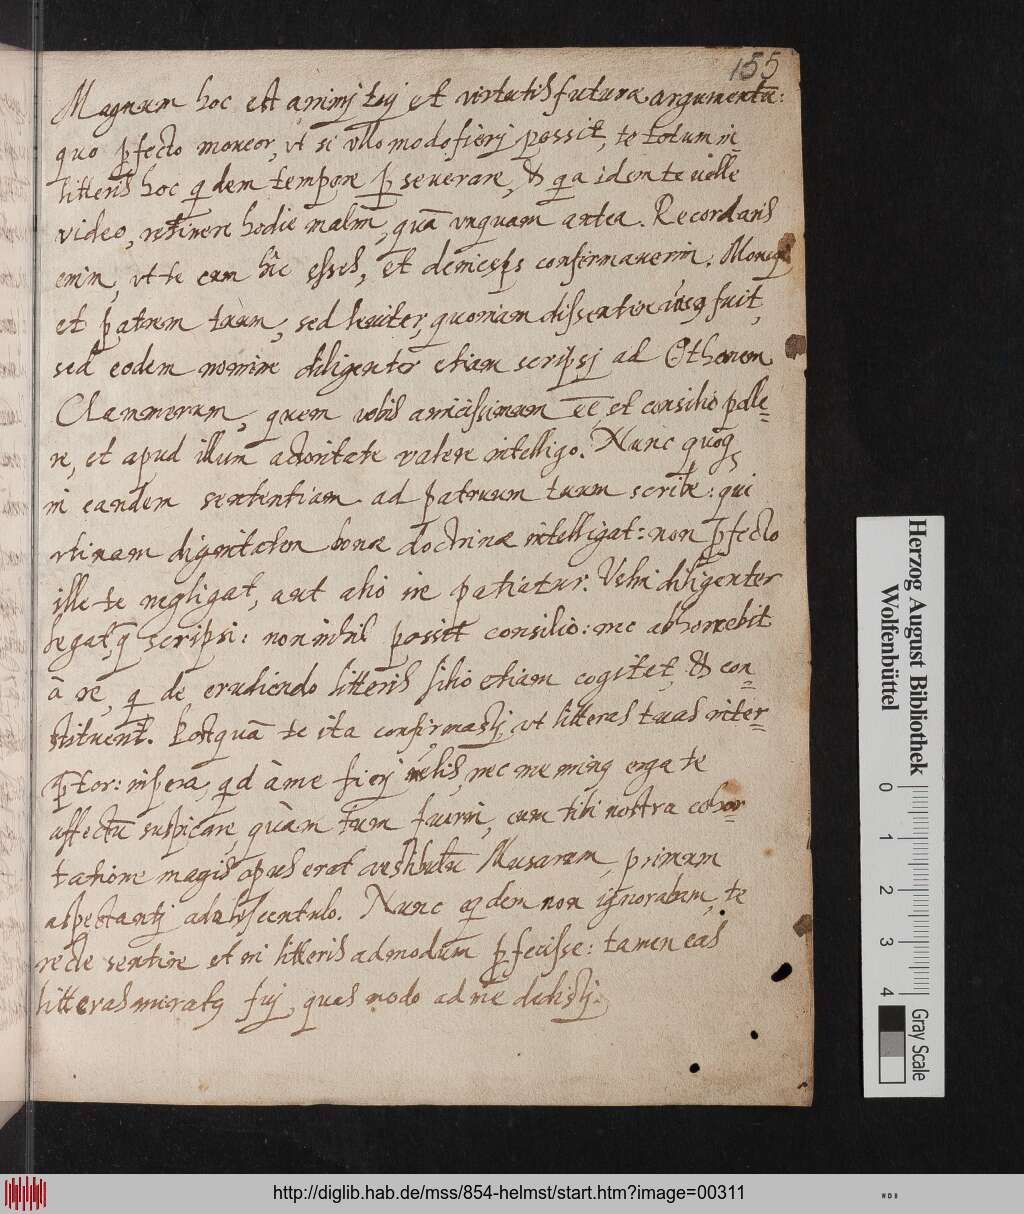 155
Magnum hoc est animj tuj et virtutis futurae argumentũ:
quo pfecto moueor, vt si vllo modo fierj possit, te totum in
litteris hoc qdem tempore pseuerare, & qa idem te uelle
video, retinere hodie malim, quã vnquam antea. Recordaris
enim, vt te cum hic esses, et deinceps confirmauerim: Monuj
et patrem tuum, sed leuiter, quoniam dissentire visq fuit,
sed eodem nomine diligenter etiam scripsj ad Othonem
Clammerum, quem vobis amicissimum eẽ et consilio polle=
re, et apud illum actoritate valere intelligo. Nunc quoq
in eandem sententiam ad patruum tuum scribe: qui
vtinam dignitatem bonae doctrinae intelligat: non pfecto
ille te negligat, aut alio ire patiatur. Velim diligenter
legat, q scripsi: non nihil possit consilio: nec abhorrebit
à re, q de erudiendo litteris filio etiam cogitet, & con=
stituent. Postquã te ita confirmastj, vt litteras tuas inter=
ptor: inspera, qd à me fierj uelis, nec me minq erga te
affectũ suspicare, quàm tum fuerim, cum tibi nostra cohor=
tatione magis opus erat vestibulũ Musarum, primum
aspectantj adulescentulo. Nunc qdem non ignorabam, te
recte sentire et in litteris admodum pfecisse: tamen eas
litteras miratq fuj, quas modo ad me dedistj.
Herzog August Bibliothek
Wolfenbüttel
0 1 2 3 4
Gray Scale
http://diglib.hab.de/mss/854-helmst/start.htm?image=00311